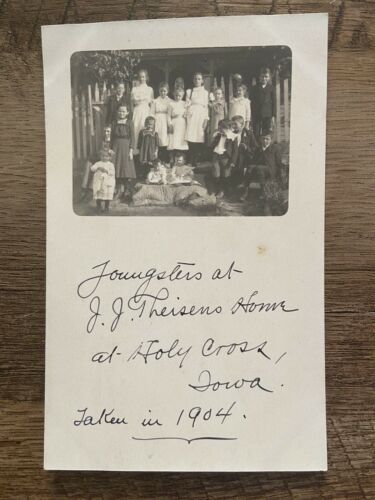 Youngsters at
J. J. Theisens Home
at Holy Cross,
Iowa.
Taken in 1904.